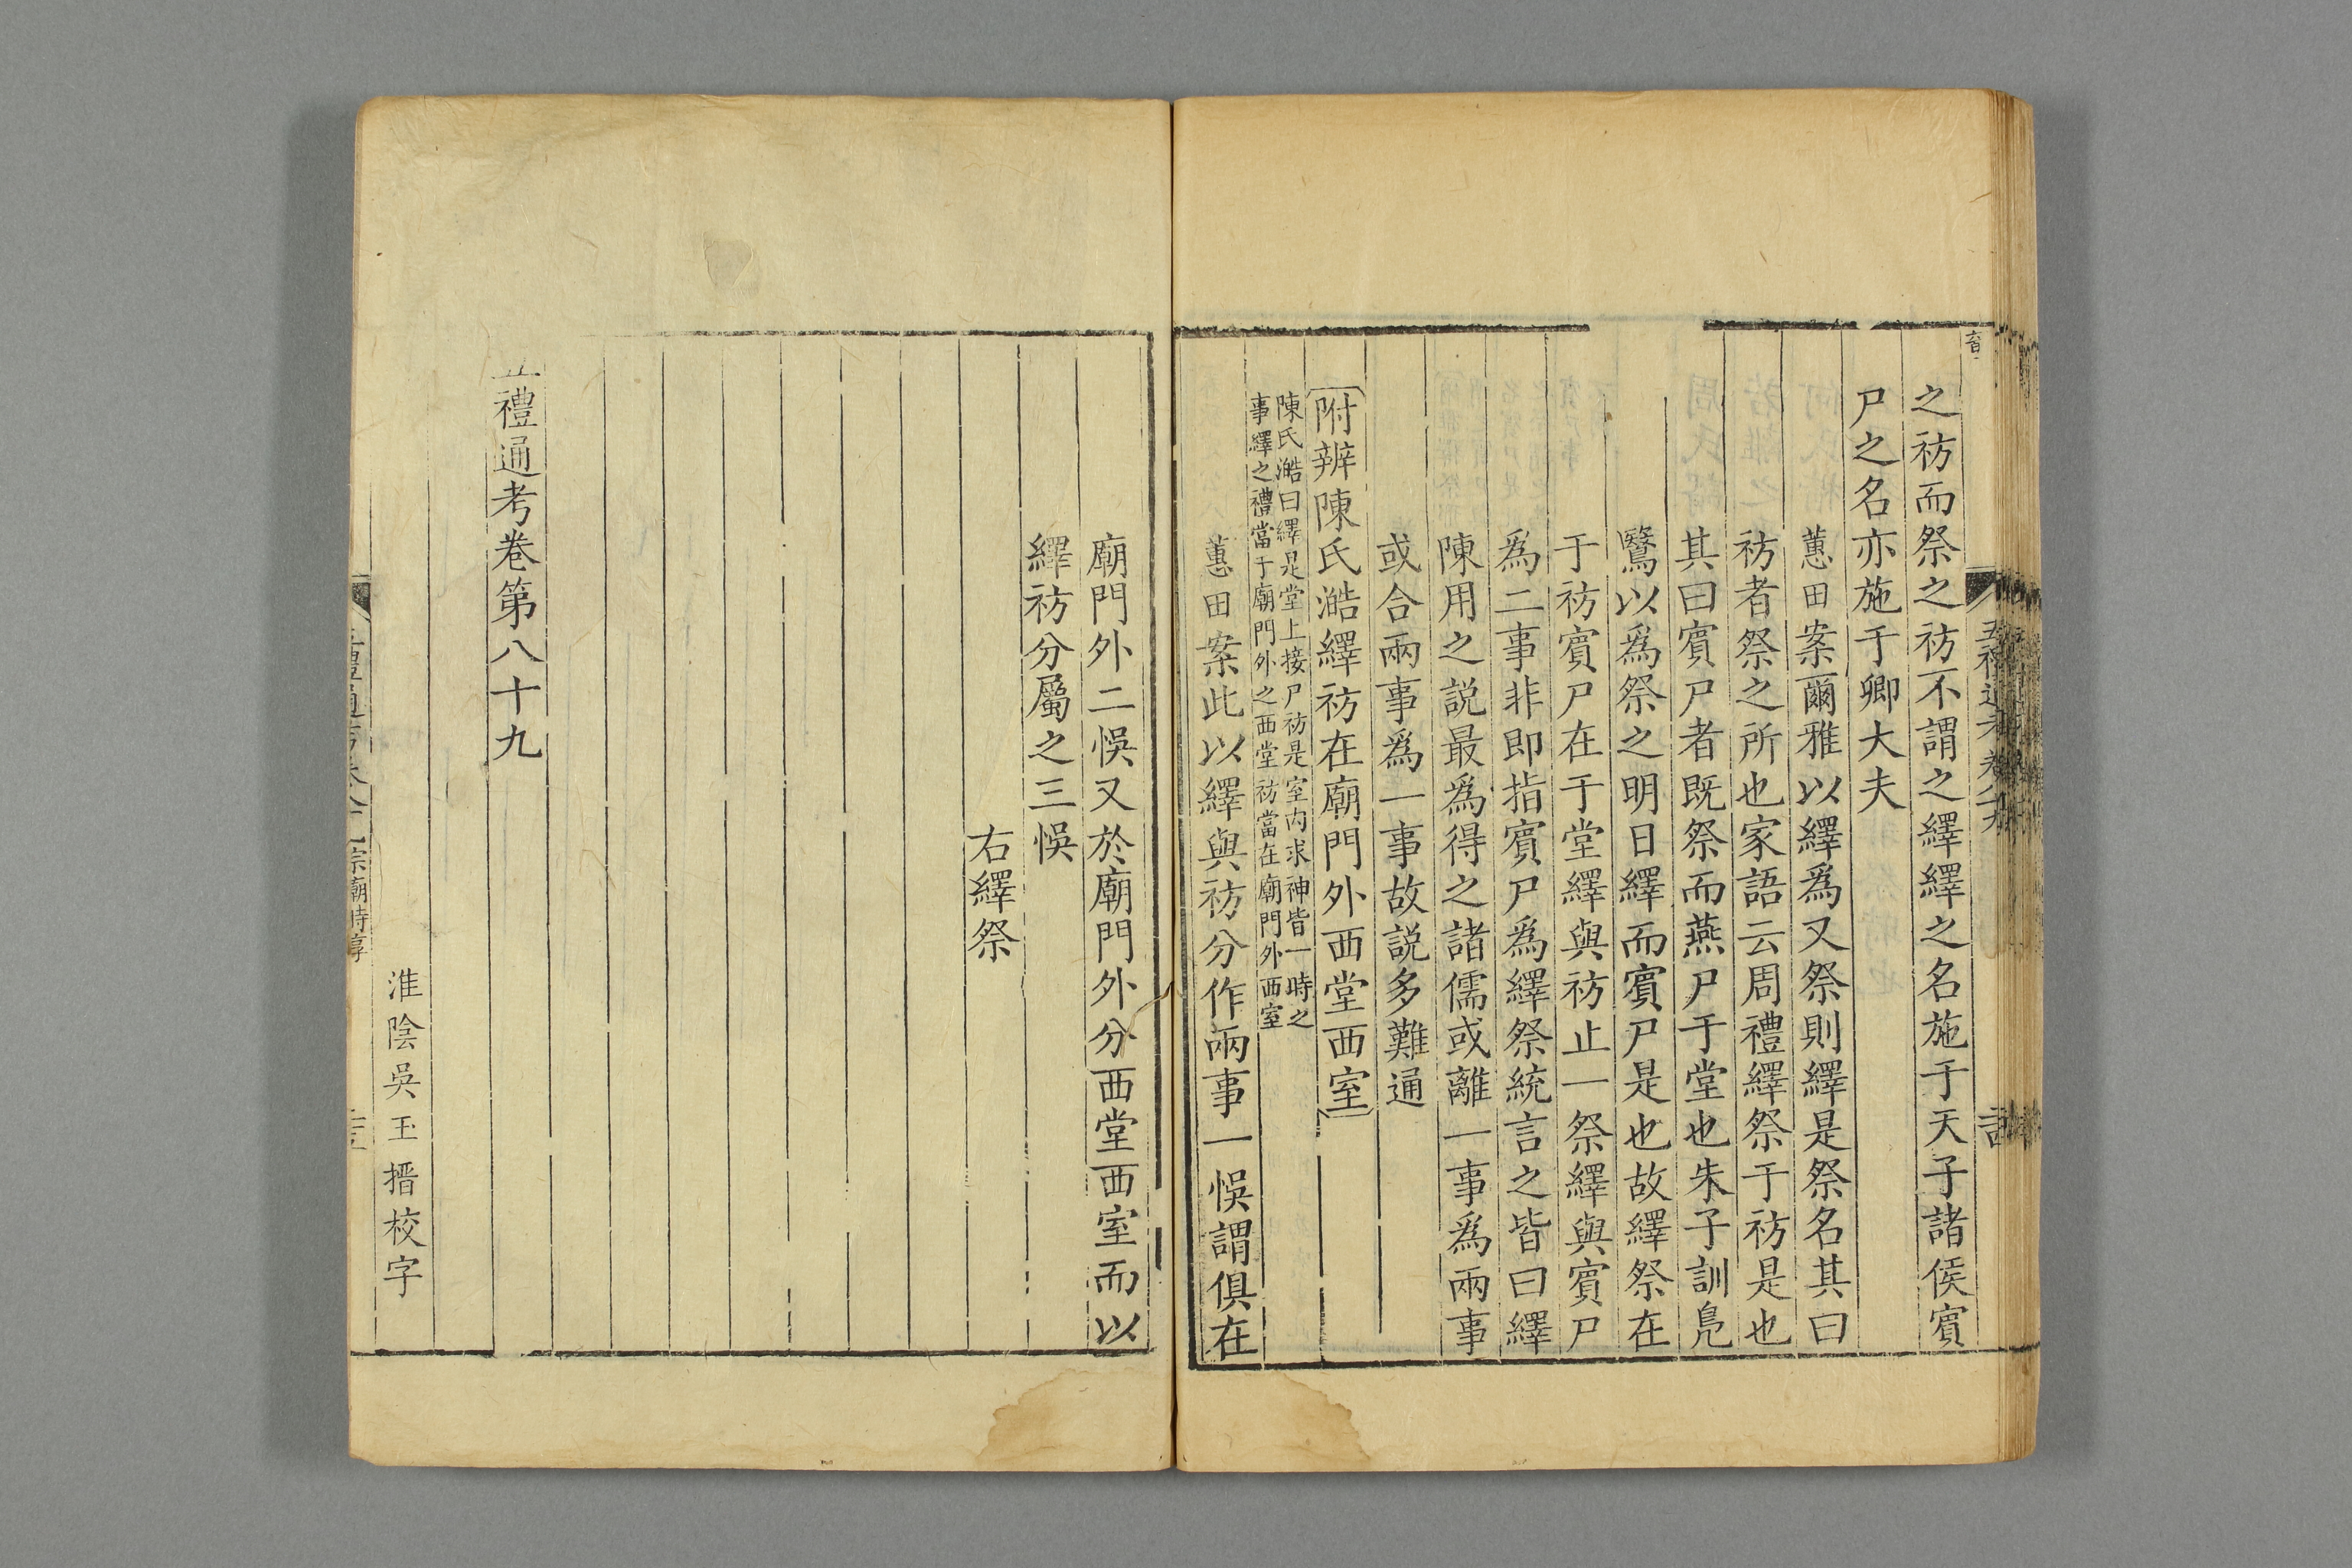 之祊而祭之祊不謂之繹繹之名施于天子諸侯賓
尸之名亦施于卿大夫
蕙田案爾雅以繹爲又祭則繹是祭名其曰
祊者祭之所也家語云周禮繹祭于祊是也
其曰賓尸者既祭而燕尸于堂也朱子訓鳧
鷖以爲祭之明日繹而賓尸是也故繹祭在
于祊賓尸在于堂繹與祊止一祭繹與賓尸
爲二事非即指賓尸爲繹祭統言之皆曰繹
陳用之説最爲得之諸儒或離一事爲兩事
或合兩事爲一事故説多難通
附辨陳氏澔繹祊在廟門外西堂西室
陳氏澔曰繹是堂上接尸祊是室內求神皆一時之
事繹之禮當于廟門外之西堂祊當在廟門外西室
蕙田案此以繹與祊分作兩事一悞謂俱在
廟門外二悞又於廟門外分西堂西室而以
繹祊分屬之三悞
右繹祭
五禮通考卷第八十九
淮陰吳玉搢校字
宗廟時享